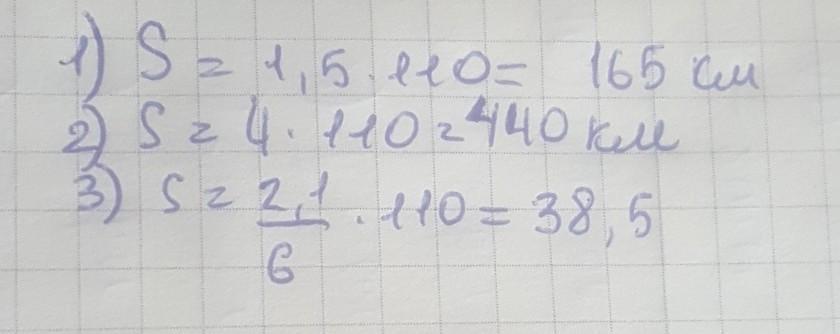 1) S = 1,5 · 110 = 165 км
2) S = 4 · 110 = 440 км
3) S = 2,1/6 · 110 = 38,5